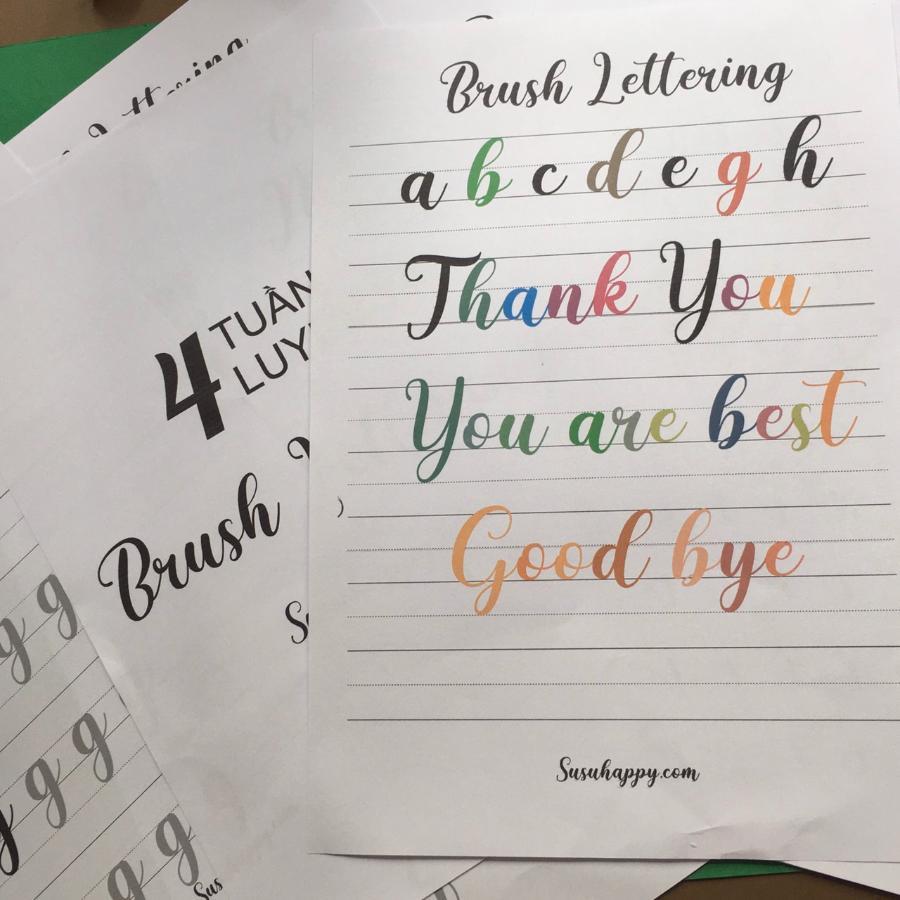 Brush Lettering
a b c d e g h
Thank You
You are best
Good bye
Susuhappy.com
4 TUẦN
Brush
g g
g g g
g g
Sus